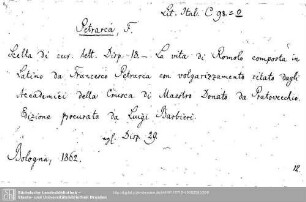 Lit. Ital. C 98 = 2
Petrarca, F.
Scelta di cur. lett. Disp. 18. - La vita di Romolo composta in
Latino da Francesco Petrarca con volgarizzamento citato dagli
Accademici della Crusca di Maestro Donato da Pratovecchio.
Edizione procurata da Luigi Barbieri.
vgl. Disp. 29.
Bologna, 1862.
12